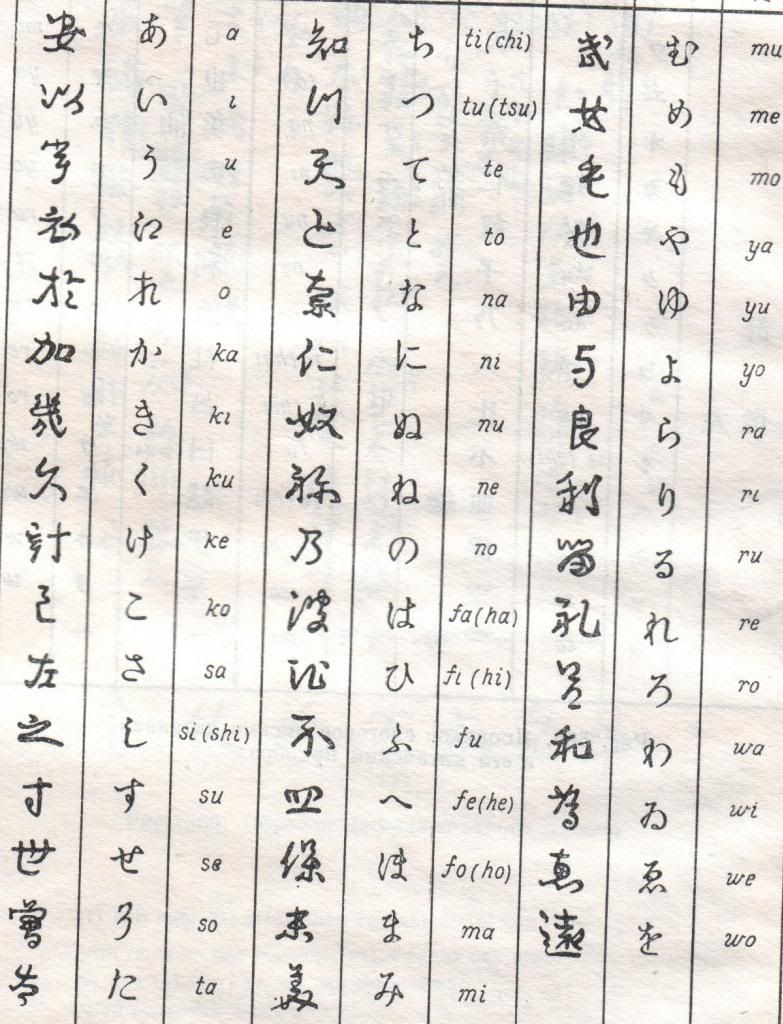 安 あ a
以 い i
宇 う u
衣 え e
於 お o
加 か ka
幾 き ki
久 く ku
計 け ke
己 こ ko
左 さ sa
之 し si(shi)
寸 す su
世 せ se
曽 そ so
た ta
知 ち ti(chi)
川 つ tu(tsu)
天 て te
止 と to
奈 な na
仁 に ni
奴 ぬ nu
祢 ね ne
乃 の no
波 は fa(ha)
比 ひ fi(hi)
不 ふ fu
へ fe(he)
保 ほ fo(ho)
末 ま ma
美 み mi
武 む mu
女 め me
毛 も mo
也 や ya
由 ゆ yu
与 よ yo
良 ら ra
利 り ri
留 る ru
礼 れ re
呂 ろ ro
和 わ wa
為 ゐ wi
恵 ゑ we
遠 を wo